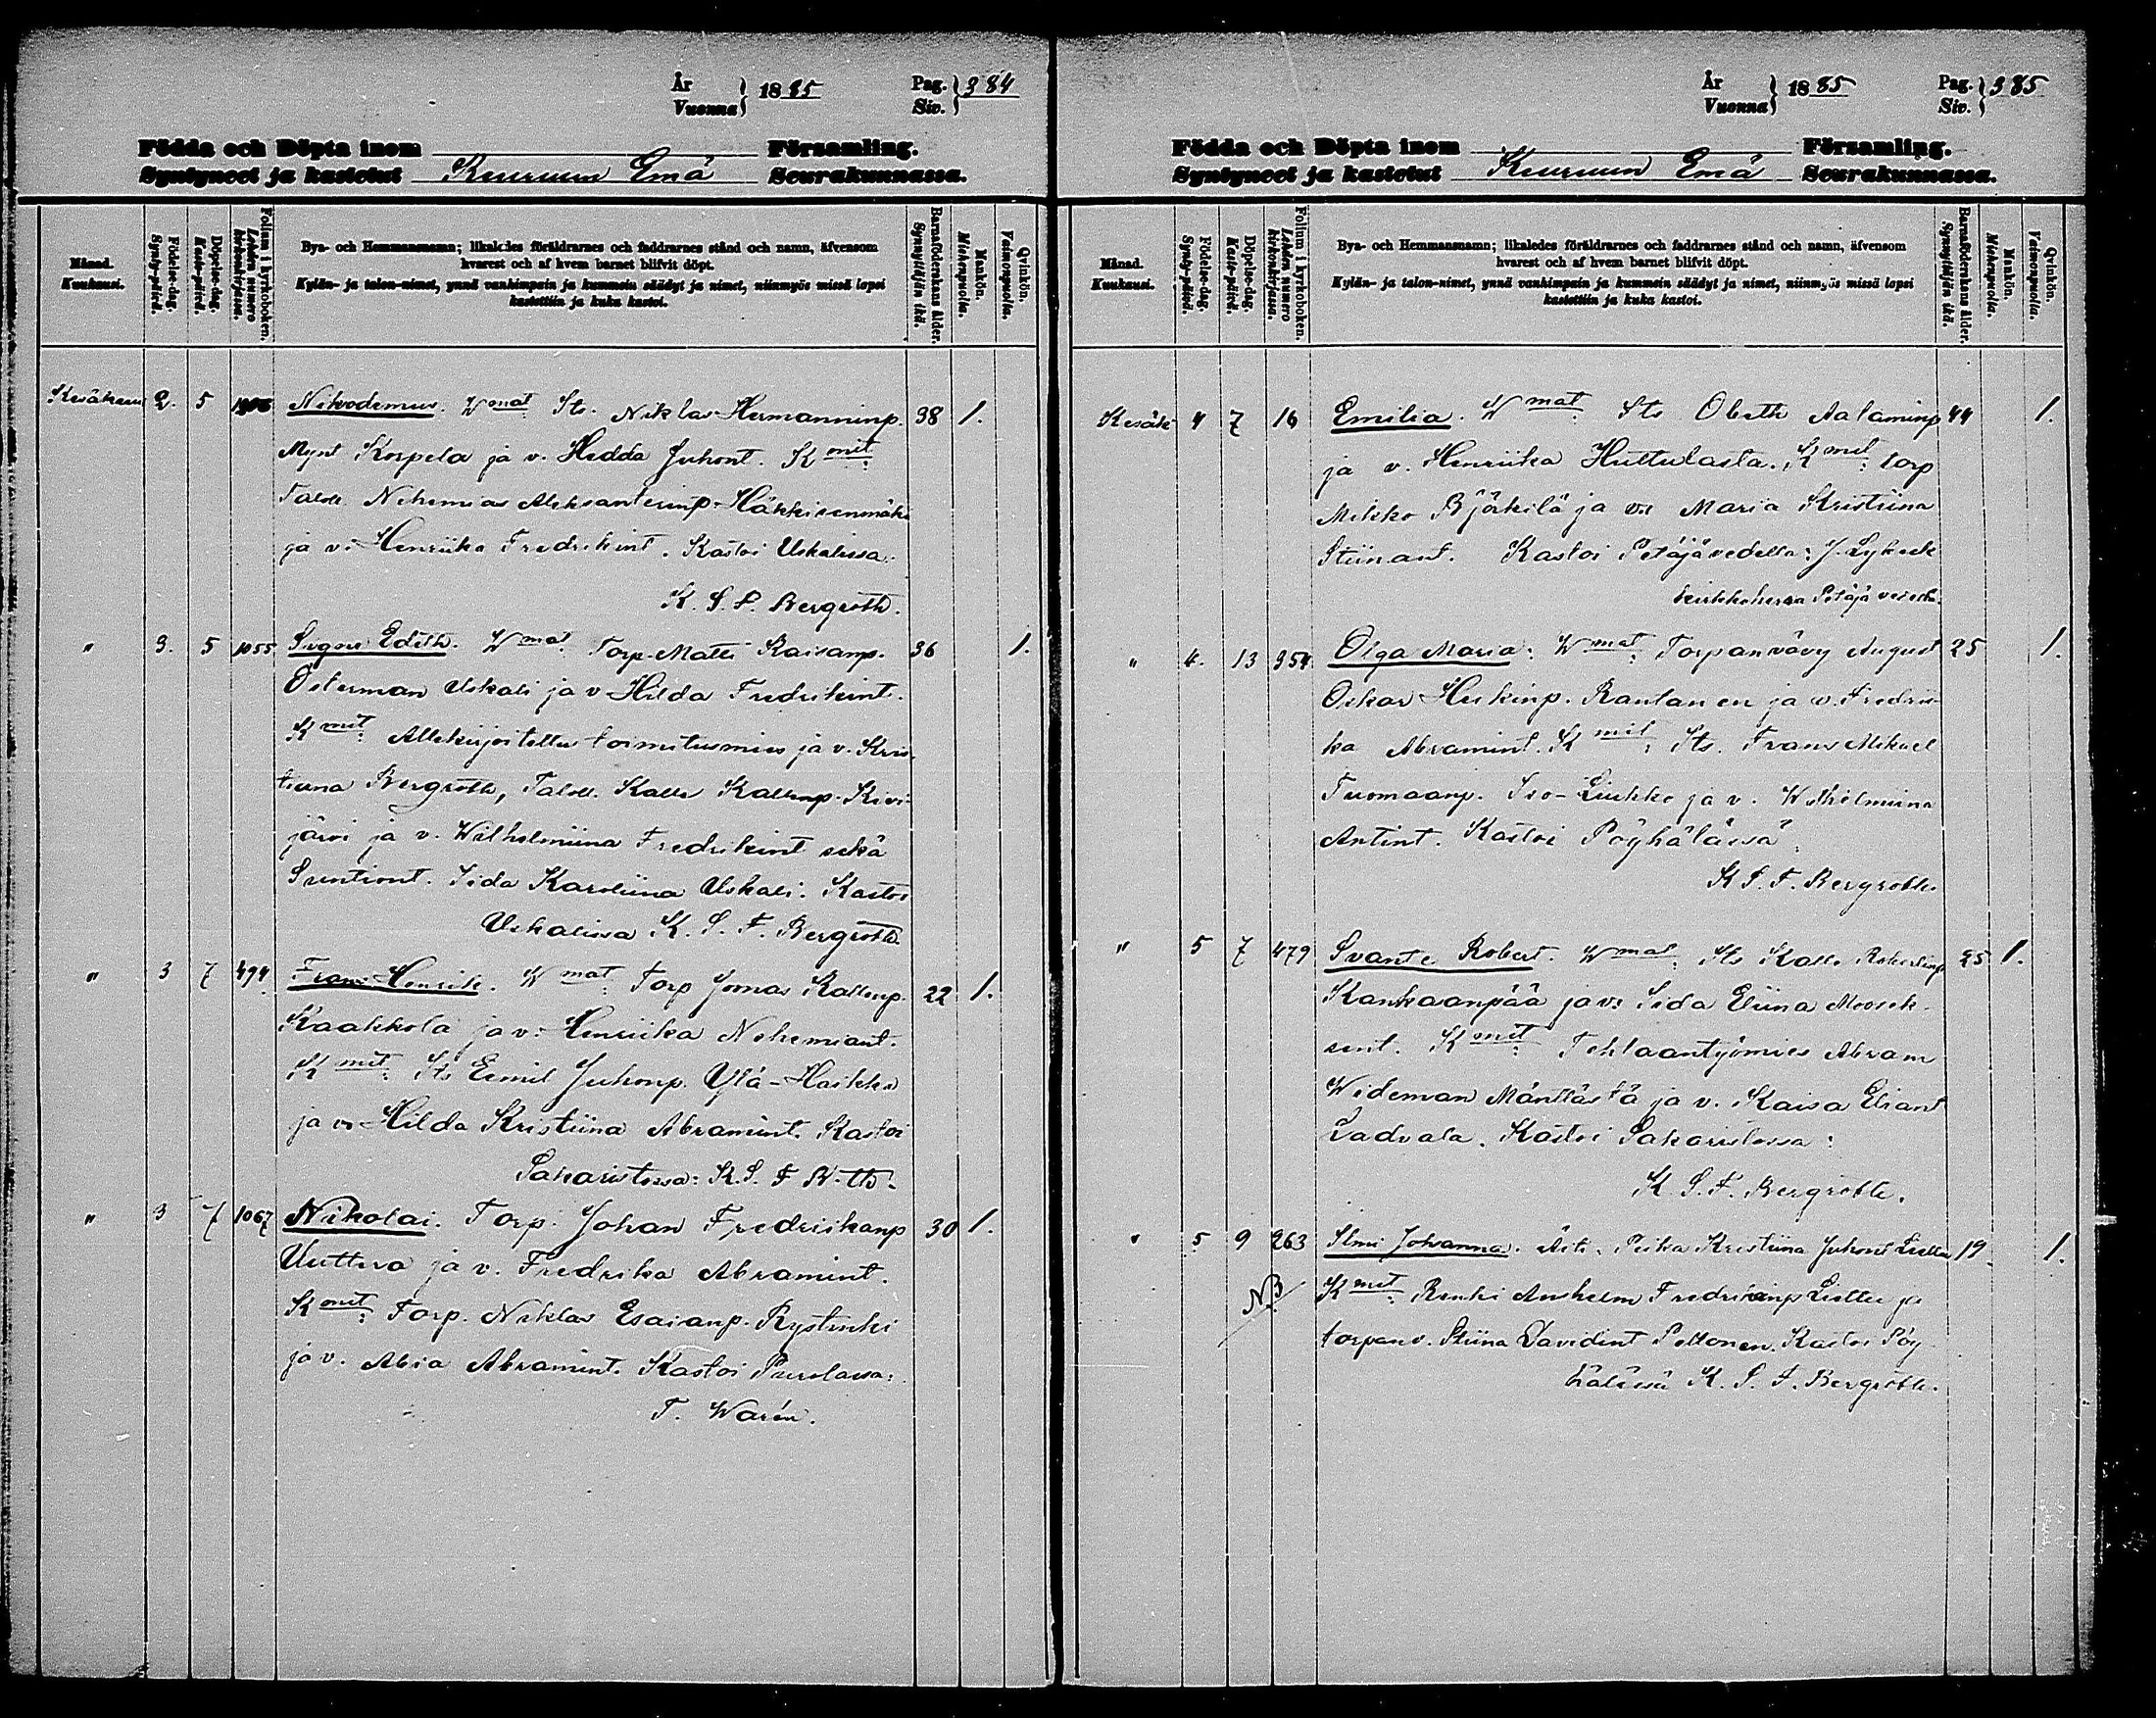 År
Vuonna
1885
Pag.
Siv.
384
Födda och Döpta inom Församling.
Syntyneet ja kastetut Keuruun Emä Seurakunnassa.
Månad.
Kuukausi.
Födelse-dag.
Synty-päivä.
Döpelse-dag.
Kaste-päivä.
Folium i kyrkoboken.
Lehden numero
kirkonkirjassa.
Bya- och Hemmansnamn; likaledes föräldrarnes och faddrarnes stånd och namn, äfvensom
hvarest och af hvem barnet blifvit döpt.
Kylän- ja talon-nimet, ynnä vanhimpain ja kummein säädyt ja nimet, niinmyös missä lapsi
kastettiin ja kuka kastoi.
Barnaföderskans ålder.
Synnyttäjän ikä.
Mankön.
Miehenpuolia.
Qvinkön.
Vaimonpuolia.
Kesäkuu 2. 5 Nikodemus. Wmat: Its. Niklas Hermanninp. 38 1.
Mynt Korpela ja v. Hedda Juhont. Kmit:
Taloll. Nehemias Aleksanterinp. Häkkisenmäki
ja v: Henriika Fredrikint. Kastoi Uskalissa:
K. S. F. Bergroth.
" 3. 5 1055 Signe Edith. Wmat: Torp. Matti Kaisanp. 36 1.
Österman Uskali ja v Hilda Fredrikint.
Kmit: Allekirjoitettu toimitusmies ja v. Kris-
tiina Bergroth, Taloll. Kalle Kallenp. Kivi-
järvi ja v. Wilhelmiina Fredrikint sekä
Suntiont. Iida Karoliina Uskali. Kastoi
Uskalissa K. S. F. Bergroth.
" 3 7 494 Frans Henrik. Wmat: Torp Joonas Kallenp. 22 1.
Kaakkola ja v: Henriika Nehemiant.
Kmit: Its Eemil Juhonp. Ylä-Haikka
ja v: Hilda Kristiina Abramint. Kastoi
Sakaristossa: K. S. F B-th.
" 3 7 1067 Nikolai. Torp. Johan Fredriikanp 30 1.
Uuttera ja v. Fredrika Abramint.
Kmit: Torp. Niklas Esaianp. Rystinki
ja v. Abia Abramint. Kastoi Purolassa:
T. Warén.
År
Vuonna
1885
Pag.
Siv.
385
Födda och Döpta inom Församling.
Syntyneet ja kastetut Keuruun Emä Seurakunnassa.
Månad.
Kuukausi.
Födelse-dag.
Synty-päivä.
Döpelse-dag.
Kaste-päivä.
Folium i kyrkoboken.
Lehden numero
kirkonkirjassa.
Bya- och Hemmansnamn; likaledes föräldrarnes och faddrarnes stånd och namn, äfvensom
hvarest och af hvem barnet blifvit döpt.
Kylän- ja talon-nimet, ynnä vanhimpain ja kummein säädyt ja nimet, niinmyös missä lapsi
kastettiin ja kuka kastoi.
Barnaföderskans ålder.
Synnyttäjän ikä.
Mankön.
Miehenpuolia.
Qvinkön.
Vaimonpuolia.
Kesäk 4 7 16 Emilia. Wmat: Its Obeth Aalaminp 44 1.
ja v. Henriika Huttulasta. Kmit: torp
Mikko Björkilä ja v: Maria Kristiina
Stiinant. Kastoi Petäjävedellä: J. Lybeck
kirkkoherra Petäjävedeltä.
" 4. 13 354 Olga Maria: Wmat: Torpanvävy August 25 1.
Oskar Heikinp. Rautanen ja v. Fredrii-
ka Abramint. Kmit: Its. Frans Mikael
Tuomaanp. Iso-Liukko ja v. Wilhelmiina
Antint. Kastoi Pöyhölässä:
K S. F. Bergroth.
" 5 7 479 Svante Robert. Wmat: Its Kalle Robertinp 25 1.
Kankaanpää ja v: Iida Eliina Moosek-
sent. Kmit: Tehtaantyömies Abram
Wideman Mänttästä ja v. Kaisa Eliant
Ladvala. Kastoi Sakaristossa:
K. S. F. Bergroth.
" 5 9 263 Ilmi Johanna. Äiti. Piika Kristiina Juhont 19 1.
NB Kmit: Renki Anshelm Fredrikinp ja
torpanv. Stiina Davidint Peltonen. Kastoi Pöy-
hölässä K. S. F. Bergroth.